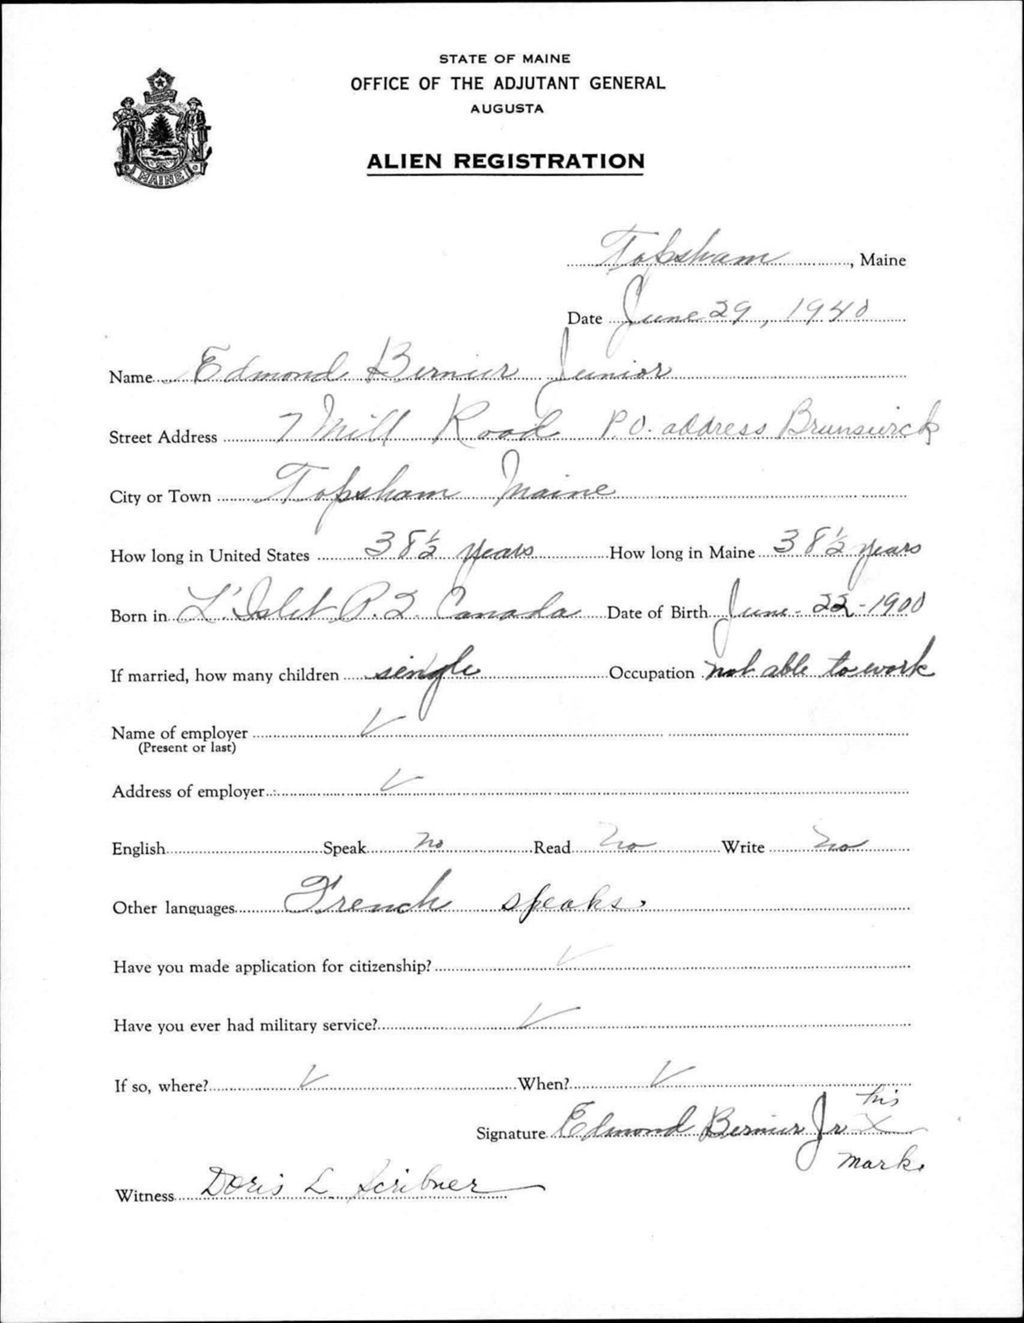 STATE OF MAINE
OFFICE OF THE ADJUTANT GENERAL
AUGUSTA
ALIEN REGISTRATION
MAINE
Topsham, Maine
Date June 29, 1940
Name Edmond Bernier Junior
Street Address 7 Mill Road P.O. address Brunswick
City or Town Topsham Maine
How long in United States 38½ years How long in Maine 38½ years
Born in L'Islet P.Q. Canada Date of Birth June-22-1900
If married, how many children single Occupation not able to work
Name of employer ✓
(Present or last)
Address of employer ✓
English Speak no Read no Write no
Other languages French speaks.
Have you made application for citizenship? ✓
Have you ever had military service? ✓
If so, where? ✓ When? ✓
his
Signature Edmond Bernier Jr X
mark.
Witness Doris L Scribner